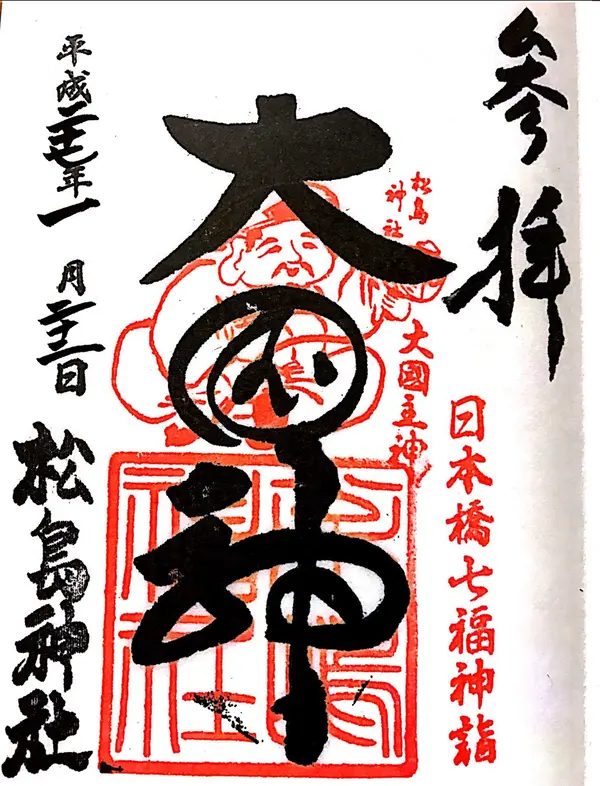 参拝
日本橋七福神詣
松島
神社
大國主神
大国神
松島
神社
平成二十七年一月二十二日
松島神社